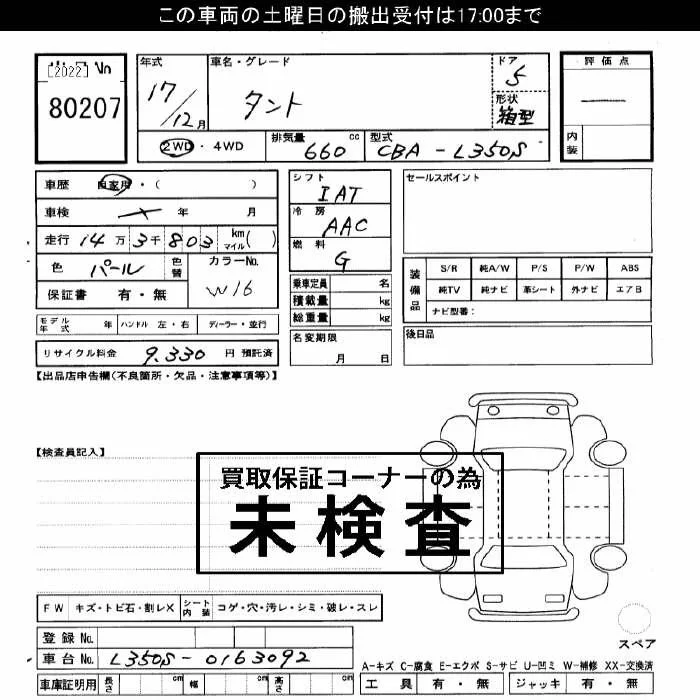 この車両の土曜日の搬出受付は17:00まで
2022 No
80207
年式
17/12月
車名・グレード
タント
ドア
5
形状
箱型
評価点
―
内装
2WD・4WD
排気量
660 cc
型式
CBA-L350S
車歴 自家用・( )
車検 年 月
走行 14万3千803 km マイル( )
色 パール 色替
カラーNo.
W16
保証書 有・無
シフト
IAT
冷房
AAC
燃料
G
乗車定員 名
積載量 kg
総重量 kg
名変期限
月 日
セールスポイント
装備品
S/R 純A/W P/S P/W ABS
純TV 純ナビ 革シート 外ナビ エアB
ナビ型番:
後日品
モデル年式 年 ハンドル 左・右 ディーラー・並行
リサイクル料金 9,330 円 預託済
【出品店申告欄(不良箇所・欠品・注意事項等)】
【検査員記入】
買取保証コーナーの為
未検査
FW キズ・トビ石・割レX シート内装 コゲ・穴・汚レ・シミ・破レ・スレ
登録No.
車台No. L350S-0163092
車庫証明用 長さ cm 幅 cm 高さ cm
スペア
A-キズ C-腐食 E-エクボ S-サビ U-凹ミ W-補修 XX-交換済
工具 有・無 ジャッキ 有・無